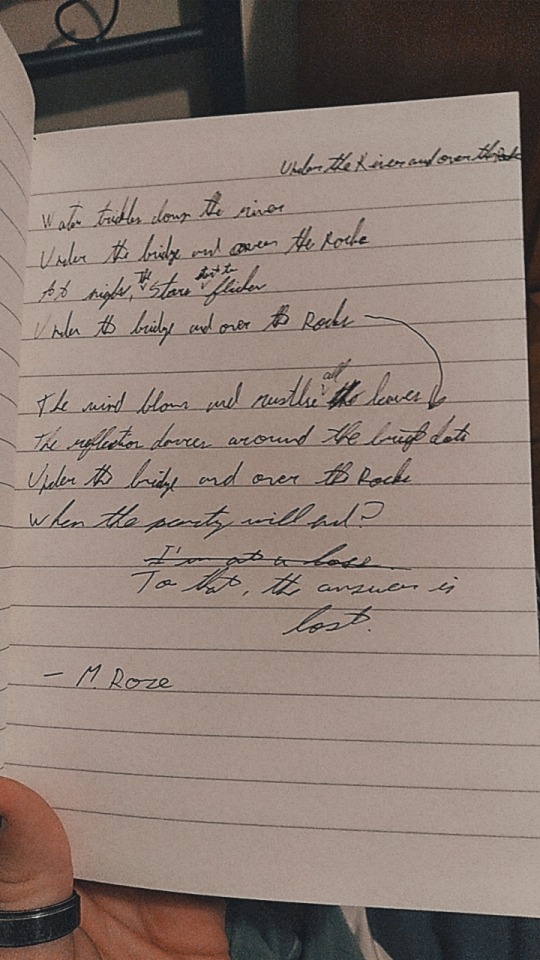 Under the River and over the
Water trickles down the river
Under the bridge and over the Rocks
At night, the Stars start to flicker
Under the bridge and over the Rocks
The wind blows and rustles all the leaves
The reflection dances around the bright dots
Under the bridge and over the Rocks
When the party will end?
I'm at a loss
To that, the answer is
lost.
- M. Roze